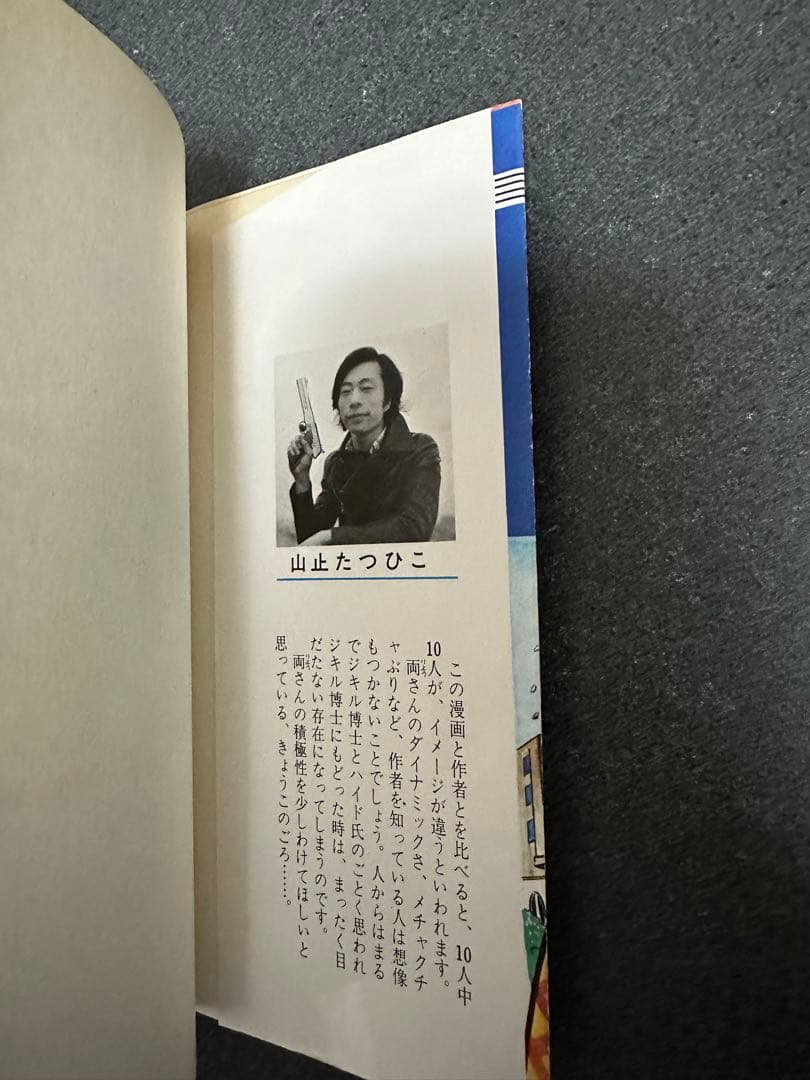 山止たつひこ
この漫画と作者とを比べると、10人中
10人が、イメージが違うといわれます。
両さんのダイナミックさ、メチャクチ
ャぶりなど、作者を知っている人は想像
もつかないことでしょう。人からはまる
でジキル博士とハイド氏のごとく思われ
ジキル博士にもどった時は、まったく目
だたない存在になってしまうのです。
両さんの積極性を少しわけてほしいと
思っている、きょうこのごろ……。